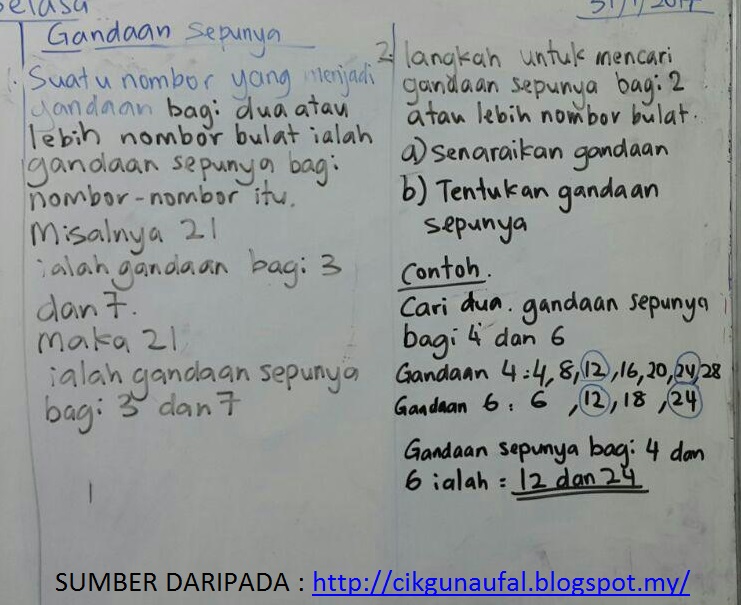 Selasa
31/1/2017
Gandaan Sepunya
1. Suatu nombor yang menjadi
gandaan bagi dua atau
lebih nombor bulat ialah
gandaan sepunya bagi
nombor-nombor itu.
Misalnya 21
ialah gandaan bagi 3
dan 7.
Maka 21
ialah gandaan sepunya
bagi 3 dan 7
2. langkah untuk mencari
gandaan sepunya bagi 2
atau lebih nombor bulat.
a) Senaraikan gandaan
b) Tentukan gandaan
sepunya
Contoh.
Cari dua. gandaan sepunya
bagi 4 dan 6
Gandaan 4 : 4, 8, 12, 16, 20, 24, 28
Gandaan 6 : 6 , 12, 18 , 24
Gandaan sepunya bagi 4 dan
6 ialah = 12 dan 24
SUMBER DARIPADA : http://cikgunaufal.blogspot.my/